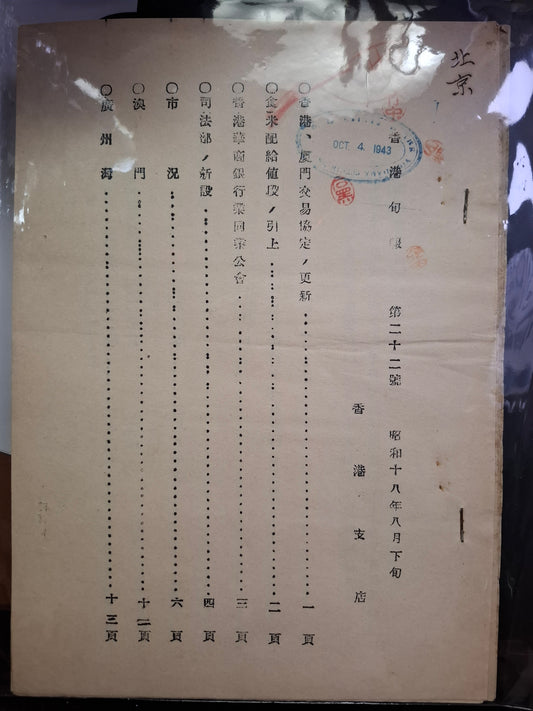 北京
香港旬報 第二十二號 昭和十八年八月下旬
OCT 4. 1943
香港支店
○香港、廈門交易協定ノ更新……一頁
○食米配給値段ノ引上……二頁
○香港華商銀行業同業公會……三頁
○司法部ノ新設……四頁
○市況……六頁
○澳門……十二頁
○廣州灣……十三頁